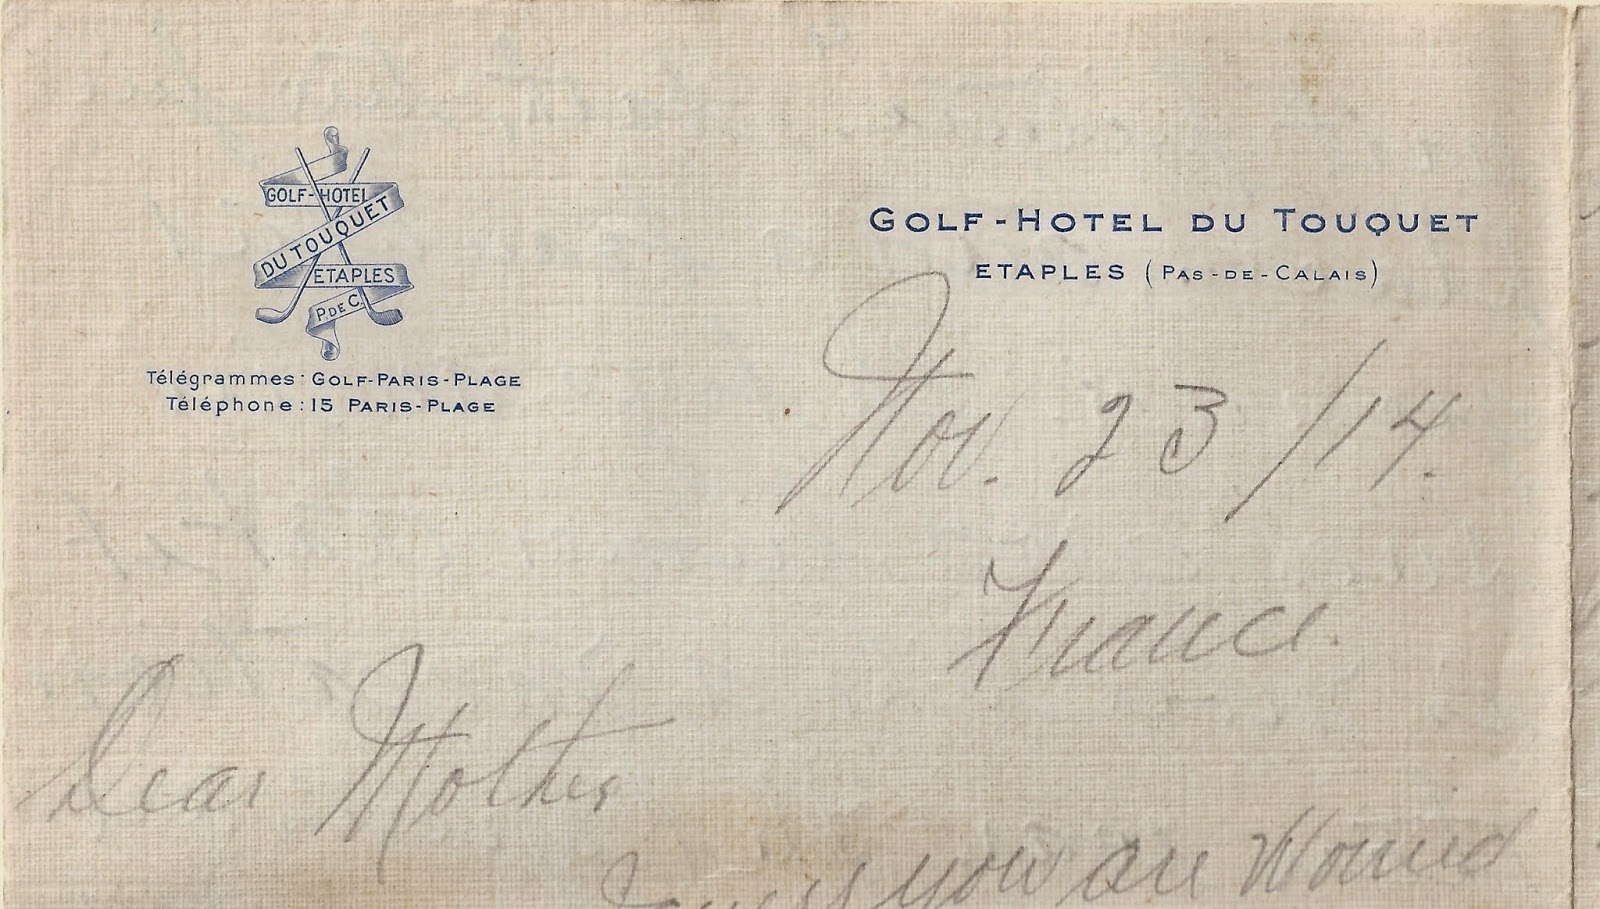 GOLF-HOTEL
DU TOUQUET
ETAPLES
P. DE C.
Télégrammes: GOLF-PARIS-PLAGE
Téléphone: 15 PARIS-PLAGE
GOLF-HOTEL DU TOUQUET
ETAPLES (PAS-DE-CALAIS)
Nov. 23/14.
France.
Dear Mother
you are